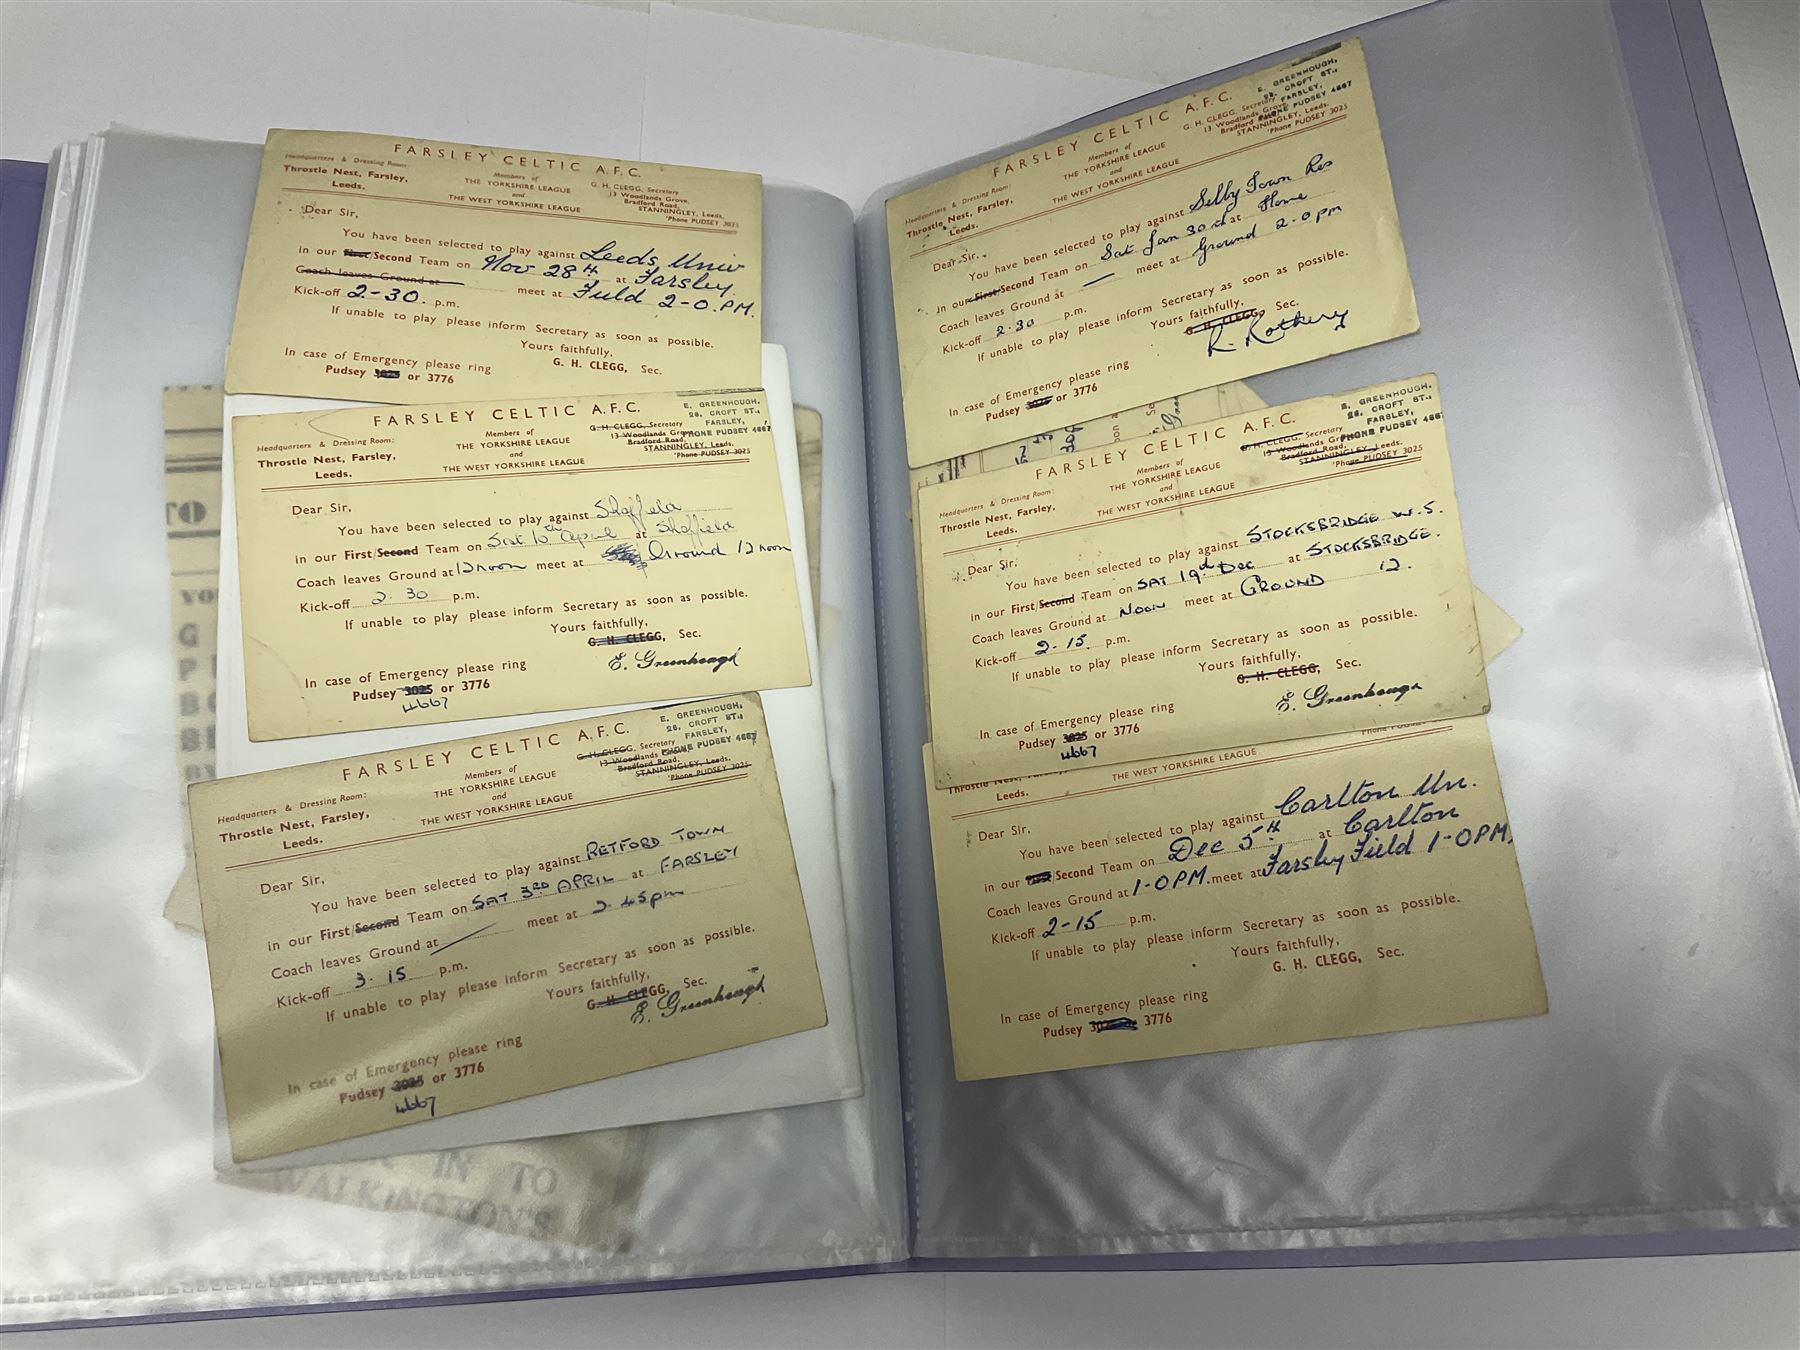 FARSLEY CELTIC A.F.C.
Headquarters & Dressing Room:
Throstle Nest, Farsley,
Leeds.
Members of
THE YORKSHIRE LEAGUE
and
THE WEST YORKSHIRE LEAGUE
G. H. CLEGG, Secretary
13 Woodlands Grove,
Bradford Road,
STANNINGLEY, Leeds.
'Phone PUDSEY 3025
Dear Sir,
You have been selected to play against Leeds Univ
in our First/Second Team on Nov 28th at Farsley
Coach leaves Ground at meet at Field 2-0.PM.
Kick-off 2-30. p.m.
If unable to play please inform Secretary as soon as possible.
Yours faithfully,
G. H. CLEGG, Sec.
In case of Emergency please ring
Pudsey 3025 or 3776
FARSLEY CELTIC A.F.C.
Headquarters & Dressing Room:
Throstle Nest, Farsley,
Leeds.
Members of
THE YORKSHIRE LEAGUE
and
THE WEST YORKSHIRE LEAGUE
E. GREENHOUGH,
28, CROFT ST.,
FARSLEY,
PHONE PUDSEY 4667
G. H. CLEGG, Secretary
13 Woodlands Grove,
Bradford Road,
STANNINGLEY, Leeds.
'Phone PUDSEY 3025
Dear Sir,
You have been selected to play against Sheffield
in our First/Second Team on Sat 10th April at Sheffield
Coach leaves Ground at 12 noon meet at Ground 12 noon
Kick-off 2.30 p.m.
If unable to play please inform Secretary as soon as possible.
Yours faithfully,
G. H. CLEGG, Sec.
E. Greenhough
In case of Emergency please ring
Pudsey 3025 or 3776
4667
FARSLEY CELTIC A.F.C.
Headquarters & Dressing Room:
Throstle Nest, Farsley,
Leeds.
Members of
THE YORKSHIRE LEAGUE
and
THE WEST YORKSHIRE LEAGUE
E. GREENHOUGH,
28, CROFT ST.,
FARSLEY,
PHONE PUDSEY 4667
G. H. CLEGG, Secretary
13 Woodlands Grove,
Bradford Road,
STANNINGLEY, Leeds.
'Phone PUDSEY 3025
Dear Sir,
You have been selected to play against RETFORD TOWN
in our First/Second Team on SAT 3RD APRIL at FARSLEY
Coach leaves Ground at meet at 2.45pm
Kick-off 3.15 p.m.
If unable to play please inform Secretary as soon as possible.
Yours faithfully,
G. H. CLEGG, Sec.
E. Greenhough
In case of Emergency please ring
Pudsey 3025 or 3776
4667
IN TO
WALKINGTON'S
FARSLEY CELTIC A.F.C.
Headquarters & Dressing Room:
Throstle Nest, Farsley,
Leeds.
Members of
THE YORKSHIRE LEAGUE
and
THE WEST YORKSHIRE LEAGUE
E. GREENHOUGH,
28, CROFT ST.,
FARSLEY,
PHONE PUDSEY 4667
G. H. CLEGG, Secretary
13 Woodlands Grove,
Bradford Road,
STANNINGLEY, Leeds.
'Phone PUDSEY 3025
Dear Sir,
You have been selected to play against Selby Town Res
in our First/Second Team on Sat Jan 30th at Home
Coach leaves Ground at — meet at Ground 2-0pm
Kick-off 2.30 p.m.
If unable to play please inform Secretary as soon as possible.
Yours faithfully,
G. H. CLEGG, Sec.
R. Rothery
In case of Emergency please ring
Pudsey 3025 or 3776
FARSLEY CELTIC A.F.C.
Headquarters & Dressing Room:
Throstle Nest, Farsley,
Leeds.
Members of
THE YORKSHIRE LEAGUE
and
THE WEST YORKSHIRE LEAGUE
E. GREENHOUGH,
28, CROFT ST.,
FARSLEY,
PHONE PUDSEY 4667
G. H. CLEGG, Secretary
13 Woodlands Grove,
Bradford Road,
STANNINGLEY, Leeds.
'Phone PUDSEY 3025
Dear Sir,
You have been selected to play against STOCKSBRIDGE W.S.
in our First/Second Team on SAT 19th DEC at STOCKSBRIDGE.
Coach leaves Ground at NOON meet at GROUND 12.
Kick-off 2-15. p.m.
If unable to play please inform Secretary as soon as possible.
Yours faithfully,
G. H. CLEGG, Sec.
E. Greenhough
In case of Emergency please ring
Pudsey 3025 or 3776
4667
Throstle Nest, Farsley,
Leeds.
THE WEST YORKSHIRE LEAGUE
'Phone PUDSEY 3025
Dear Sir,
You have been selected to play against Carlton Un.
in our First/Second Team on Dec 5th at Carlton
Coach leaves Ground at 1-0PM. meet at Farsley Field 1-0PM.
Kick-off 2-15 p.m.
If unable to play please inform Secretary as soon as possible.
Yours faithfully,
G. H. CLEGG, Sec.
In case of Emergency please ring
Pudsey 3776